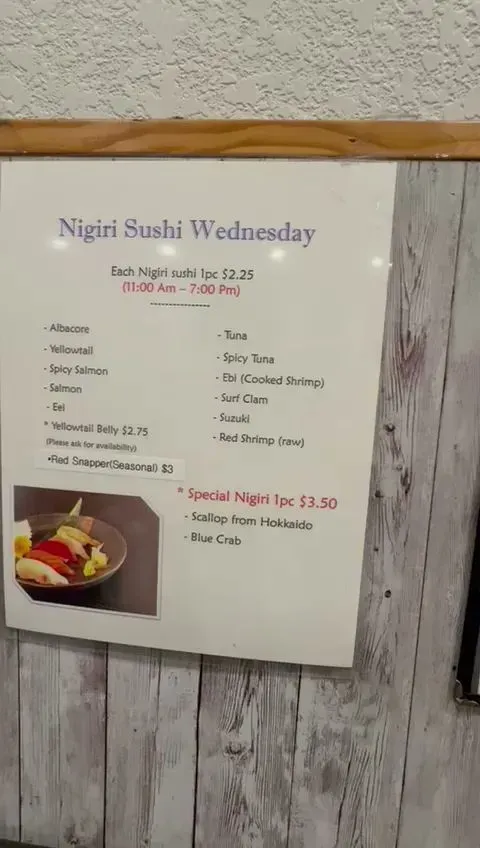 Nigiri Sushi Wednesday
Each Nigiri sushi 1pc $2.25
(11:00 Am – 7:00 Pm)
----------------
- Albacore
- Yellowtail
- Spicy Salmon
- Salmon
- Eel
* Yellowtail Belly $2.75
(Please ask for availability)
•Red Snapper(Seasonal) $3
- Tuna
- Spicy Tuna
- Ebi (Cooked Shrimp)
- Surf Clam
- Suzuki
- Red Shrimp (raw)
* Special Nigiri 1pc $3.50
- Scallop from Hokkaido
- Blue Crab